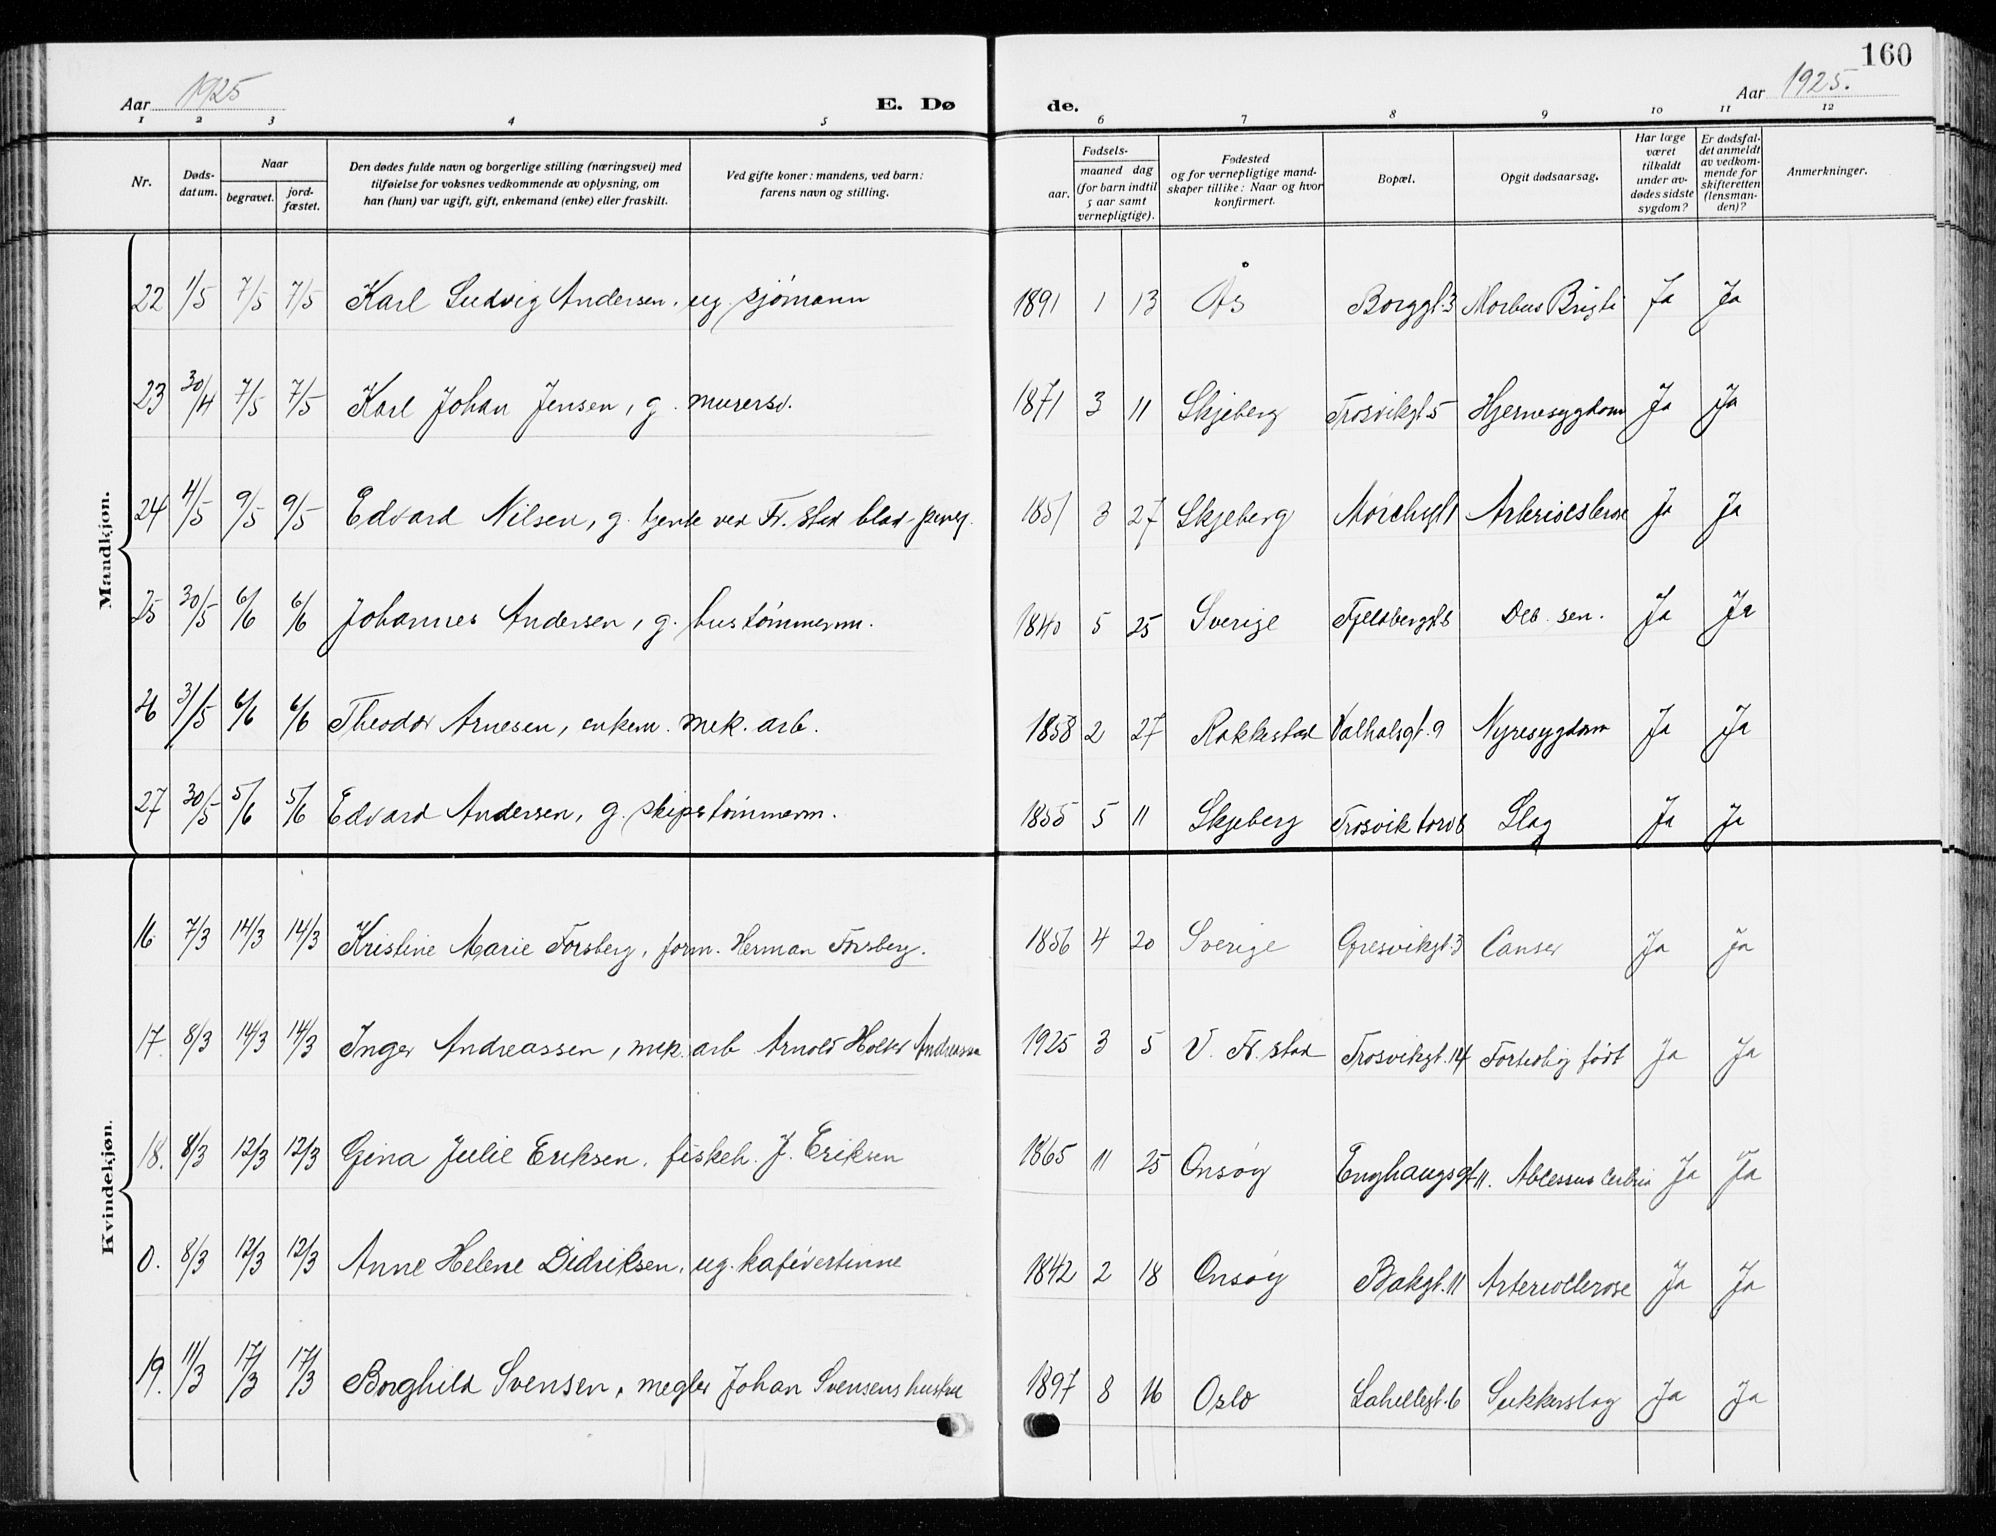 160
Aar 1925
E. Dø
de.
Aar 1925.
1 2 3 4 5 6 7 8 9 10 11 12
Nr.
Døds-
datum.
Naar
begravet.
jord-
fæstet.
Den dødes fulde navn og borgerlige stilling (næringsvei) med
tilføielse for voksnes vedkommende av oplysning, om
han (hun) var ugift, gift, enkemand (enke) eller fraskilt.
Ved gifte koner: mandens, ved barn:
farens navn og stilling.
Fødsels-
aar.
maaned dag
(for barn indtil
5 aar samt
vernepligtige).
Fødested
og for vernepligtige mand-
skaper tillike: Naar og hvor
konfirmert.
Bopæl.
Opgit dødsaarsag.
Har læge
været
tilkaldt
under av-
dødes sidste
sygdom?
Er dødsfal-
det anmeldt
av vedkom-
mende for
skifteretten
(lensman-
den)?
Anmerkninger.
Mandkjøn.
22 1/5 7/5 7/5 Karl Ludvig Andersen. ug. sjømann 1891 1 13 Ås Borggt. 3 Morbus Brigti Ja Ja
23 30/4 7/5 7/5 Karl Johan Jensen, g. murersv. 1871 3 11 Skjeberg Trosvikgt. 5 Hjernesygdom Ja Ja
24 4/5 9/5 9/5 Edvard Nilsen, g. ved Fr. stad blad 1851 3 27 Skjeberg Ja Ja
25 30/5 6/6 6/6 Johannes Andersen, g. hustømmerm. 1840 5 25 Sverige Deb. sen. Ja Ja
26 31/5 6/6 6/6 Theodor Arnesen, enkem. mek. arb. 1858 2 27 Rakkestad Valhalsgt. 9 Nyresygdom Ja Ja
27 30/5 5/6 5/6 Edvard Andersen, g. skipstømmerm. 1855 5 11 Skjeberg Trosvik torv 6 Slag Ja Ja
Kvindekjøn.
16 7/3 14/3 14/3 Kristine Marie Forsberg, form. Herman Forsberg. 1856 4 20 Sverige Gresvikgt. 3 Canser Ja Ja
17. 8/3 14/3 14/3 Inger Andreassen, mek. arb Arnold Holter Andreassen 1925 3 5 V. Fr. stad Trosvikgt. 14 Fortidlig født Ja Ja
18. 8/3 12/3 12/3 Gina Julie Eriksen. fiskeh. J. Eriksen 1865 11 25 Onsøy Enghaugsgt 11. Ja Ja
0. 8/3 12/3 12/3 Anne Helene Didriksen, ug. kafévertinne 1842 2 18 Onsøy Bakgt. 11 Ja Ja
19. 11/3 17/3 17/3 Borghild Svensen, megler Johan Svensens hustru 1897 8 16 Oslo Lahellegt. 6 Sukkerslag Ja Ja